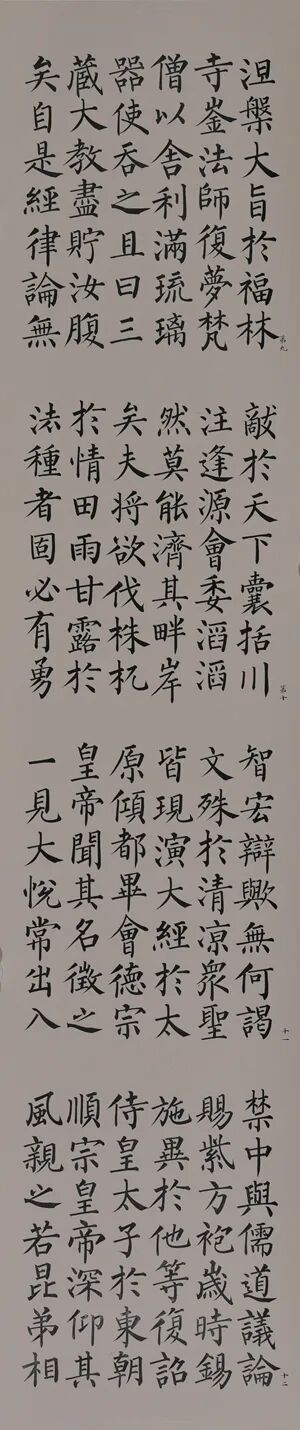 涅槃大旨於福林
寺崟法師復夢梵
僧以舍利滿琉璃
器使吞之且曰三
藏大教盡貯汝腹
矣自是經律論無
第九
敵於天下囊括川
注逢源會委滔滔
然莫能濟其畔岸
矣夫將欲伐株杌
於情田雨甘露於
法種者固必有勇
第十
智宏辯歟無何謁
文殊於清凉衆聖
皆現演大經於太
原傾都畢會德宗
皇帝聞其名徵之
一見大悅常出入
十一
禁中與儒道議論
賜紫方袍歲時錫
施異於他等復詔
侍皇太子於東朝
順宗皇帝深仰其
風親之若昆弟相
十二